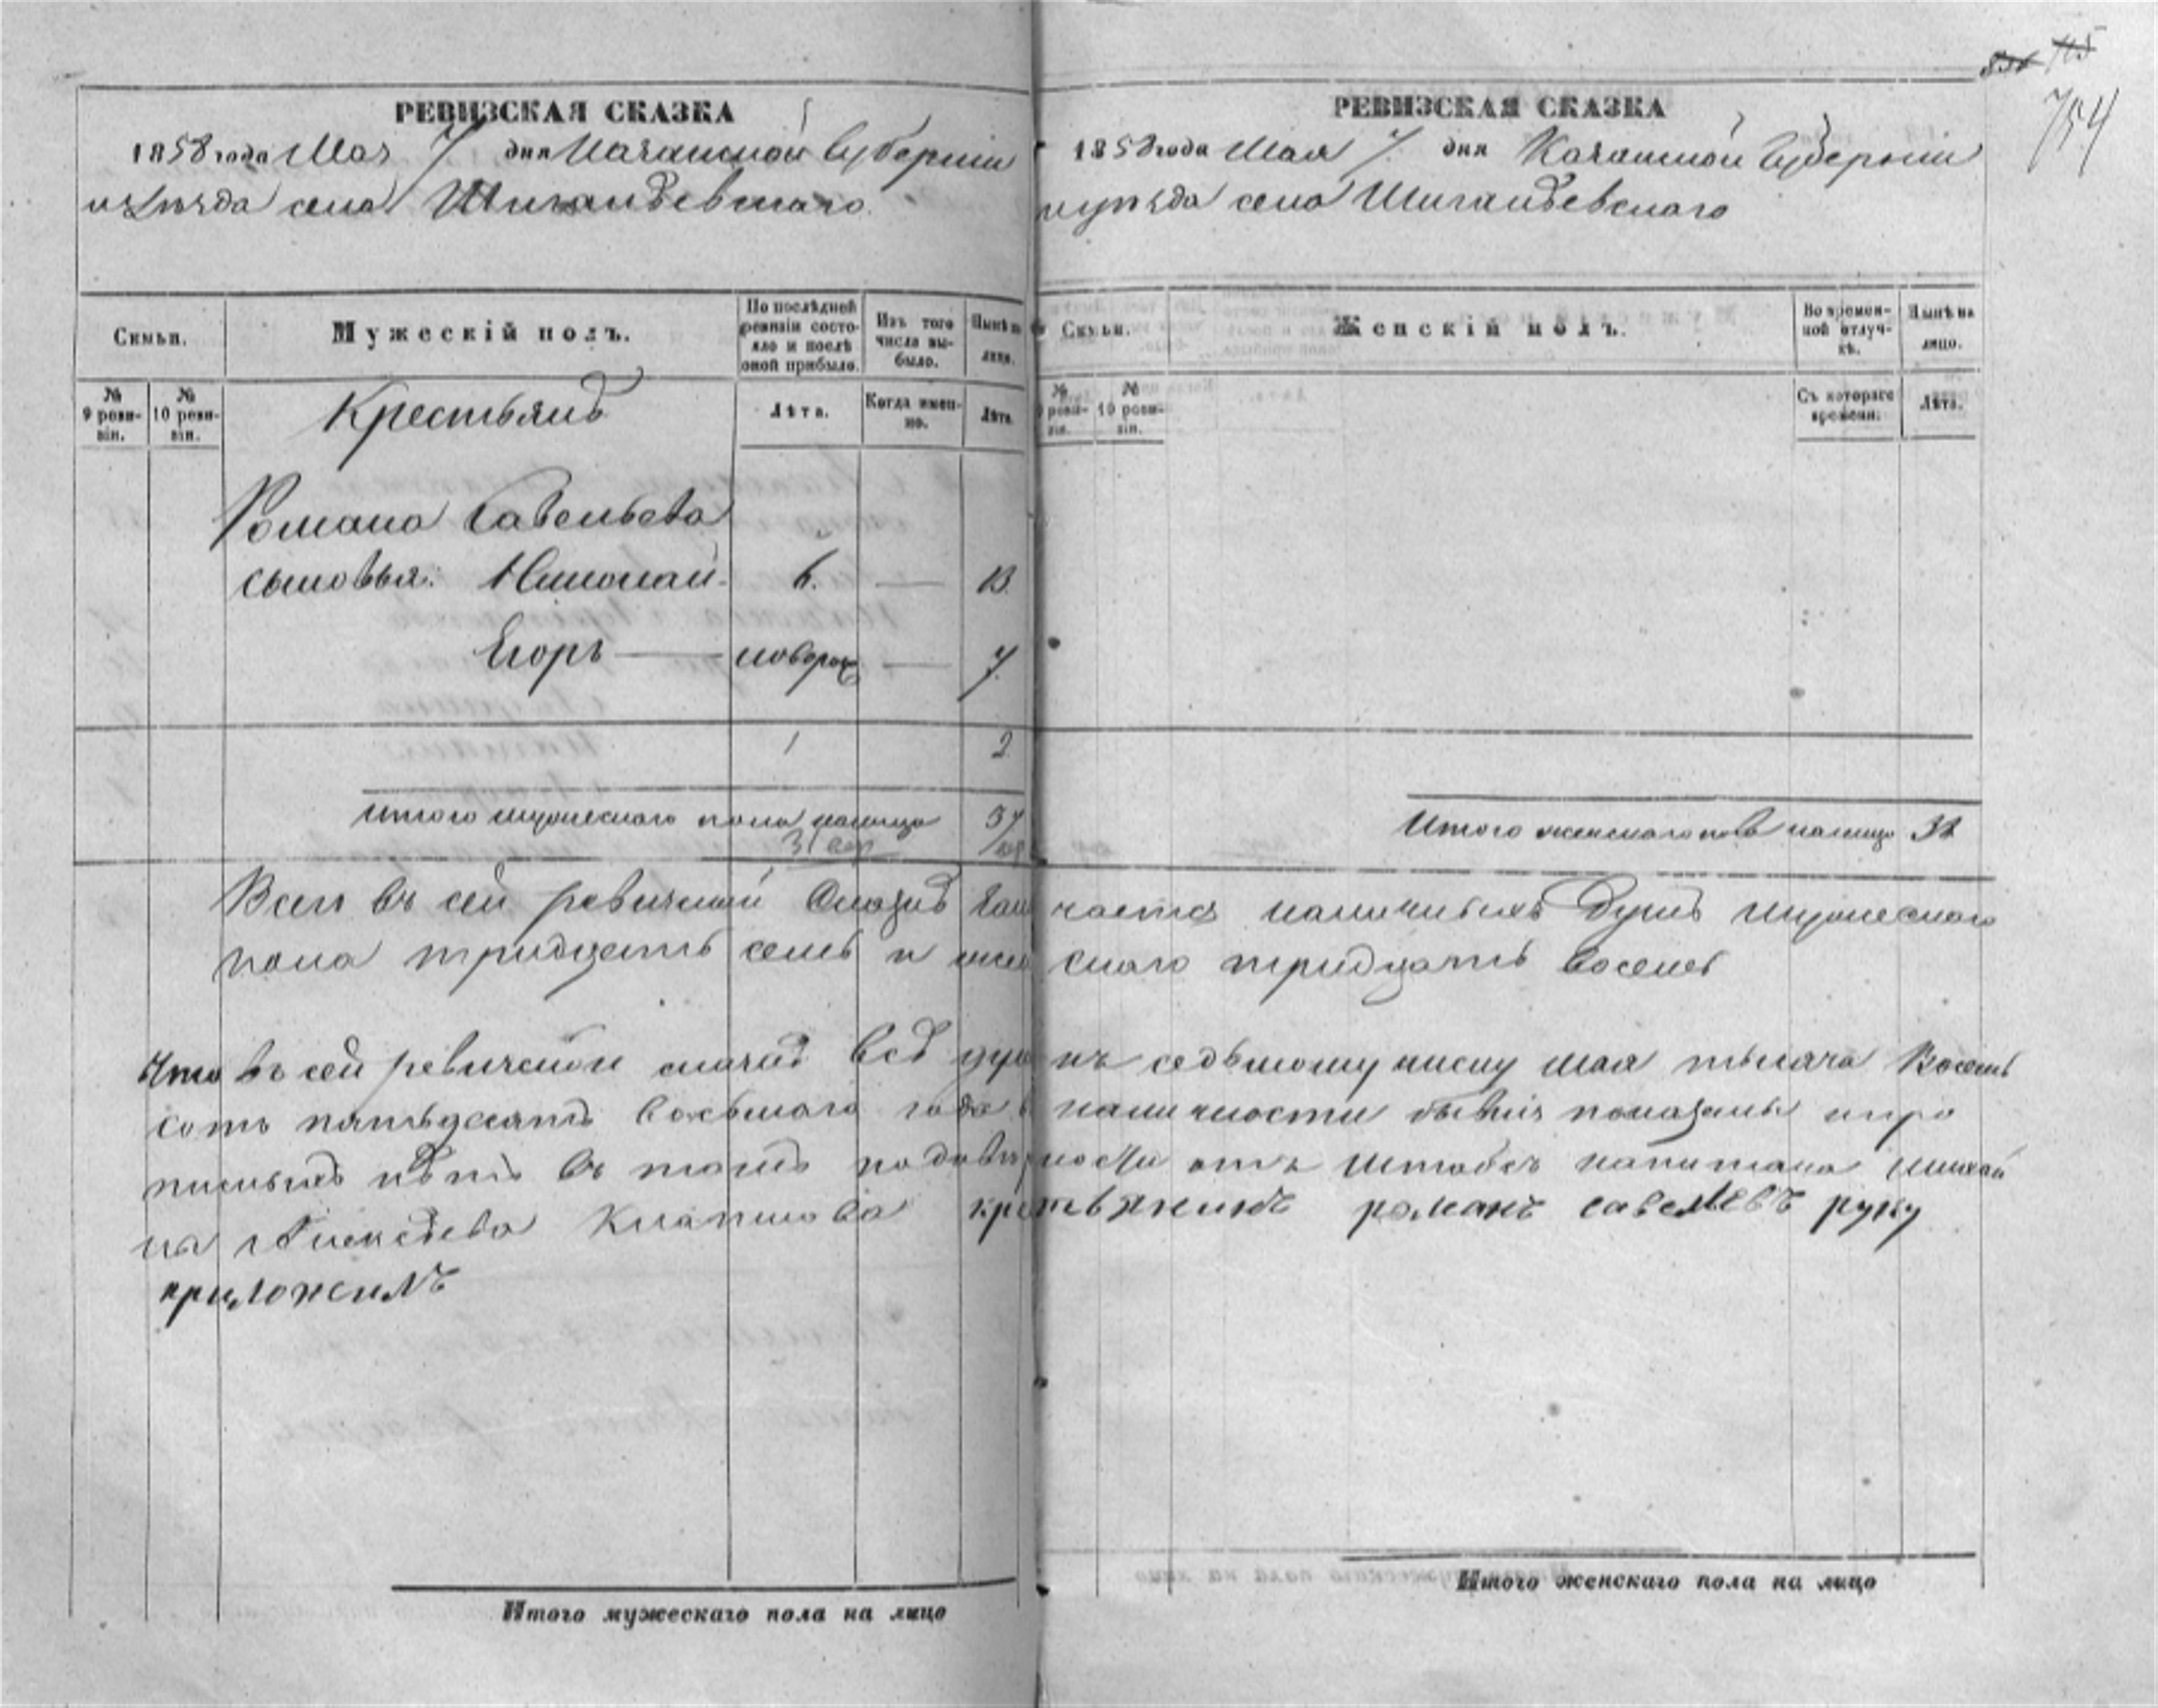 754
РЕВИЗСКАЯ СКАЗКА
1858 года Мая 7 дня Казанской Губерніи
уѣзда села Шигандевскаго
Семьи.
Мужескій полъ.
По послѣдней ревизіи состояло и послѣ оной прибыло.
Изъ того числа выбыло.
Нынѣ на лицо.
№ 9 ревизіи.
№ 10 ревизіи.
Крестьянъ
Лѣта.
Когда именно.
Лѣта.
Романа Савельева
сыновья: Николай 6. — 13.
Егоръ — новорож — 7.
1 2
Итого мужескаго пола налицо 37
Итого мужескаго пола на лицо
РЕВИЗСКАЯ СКАЗКА
1858 года Мая 7 дня Казанской Губерніи
уѣзда села Шигандевскаго
Семьи.
Женскій полъ.
Во временной отлучкѣ.
Нынѣ на лицо.
№ 9 ревизіи.
№ 10 ревизіи.
Съ котораго времени.
Лѣта.
Итого женскаго пола налицо 38
Всего въ сей ревизской сказкѣ значится наличныхъ душъ мужескаго
пола тридцать семь и женскаго тридцать восемь
Что въ сей ревизской сказкѣ всѣ души къ седьмому числу мая тысяча восемь
сотъ пятьдесятъ восьмаго года въ наличности бывшія показаны и про
писныхъ нѣтъ въ томъ по довѣрности отъ Штабсъ капитана Михай
ла Алексѣева крестьянинъ романъ савелевъ руку
приложилъ
Итого женскаго пола на лицо